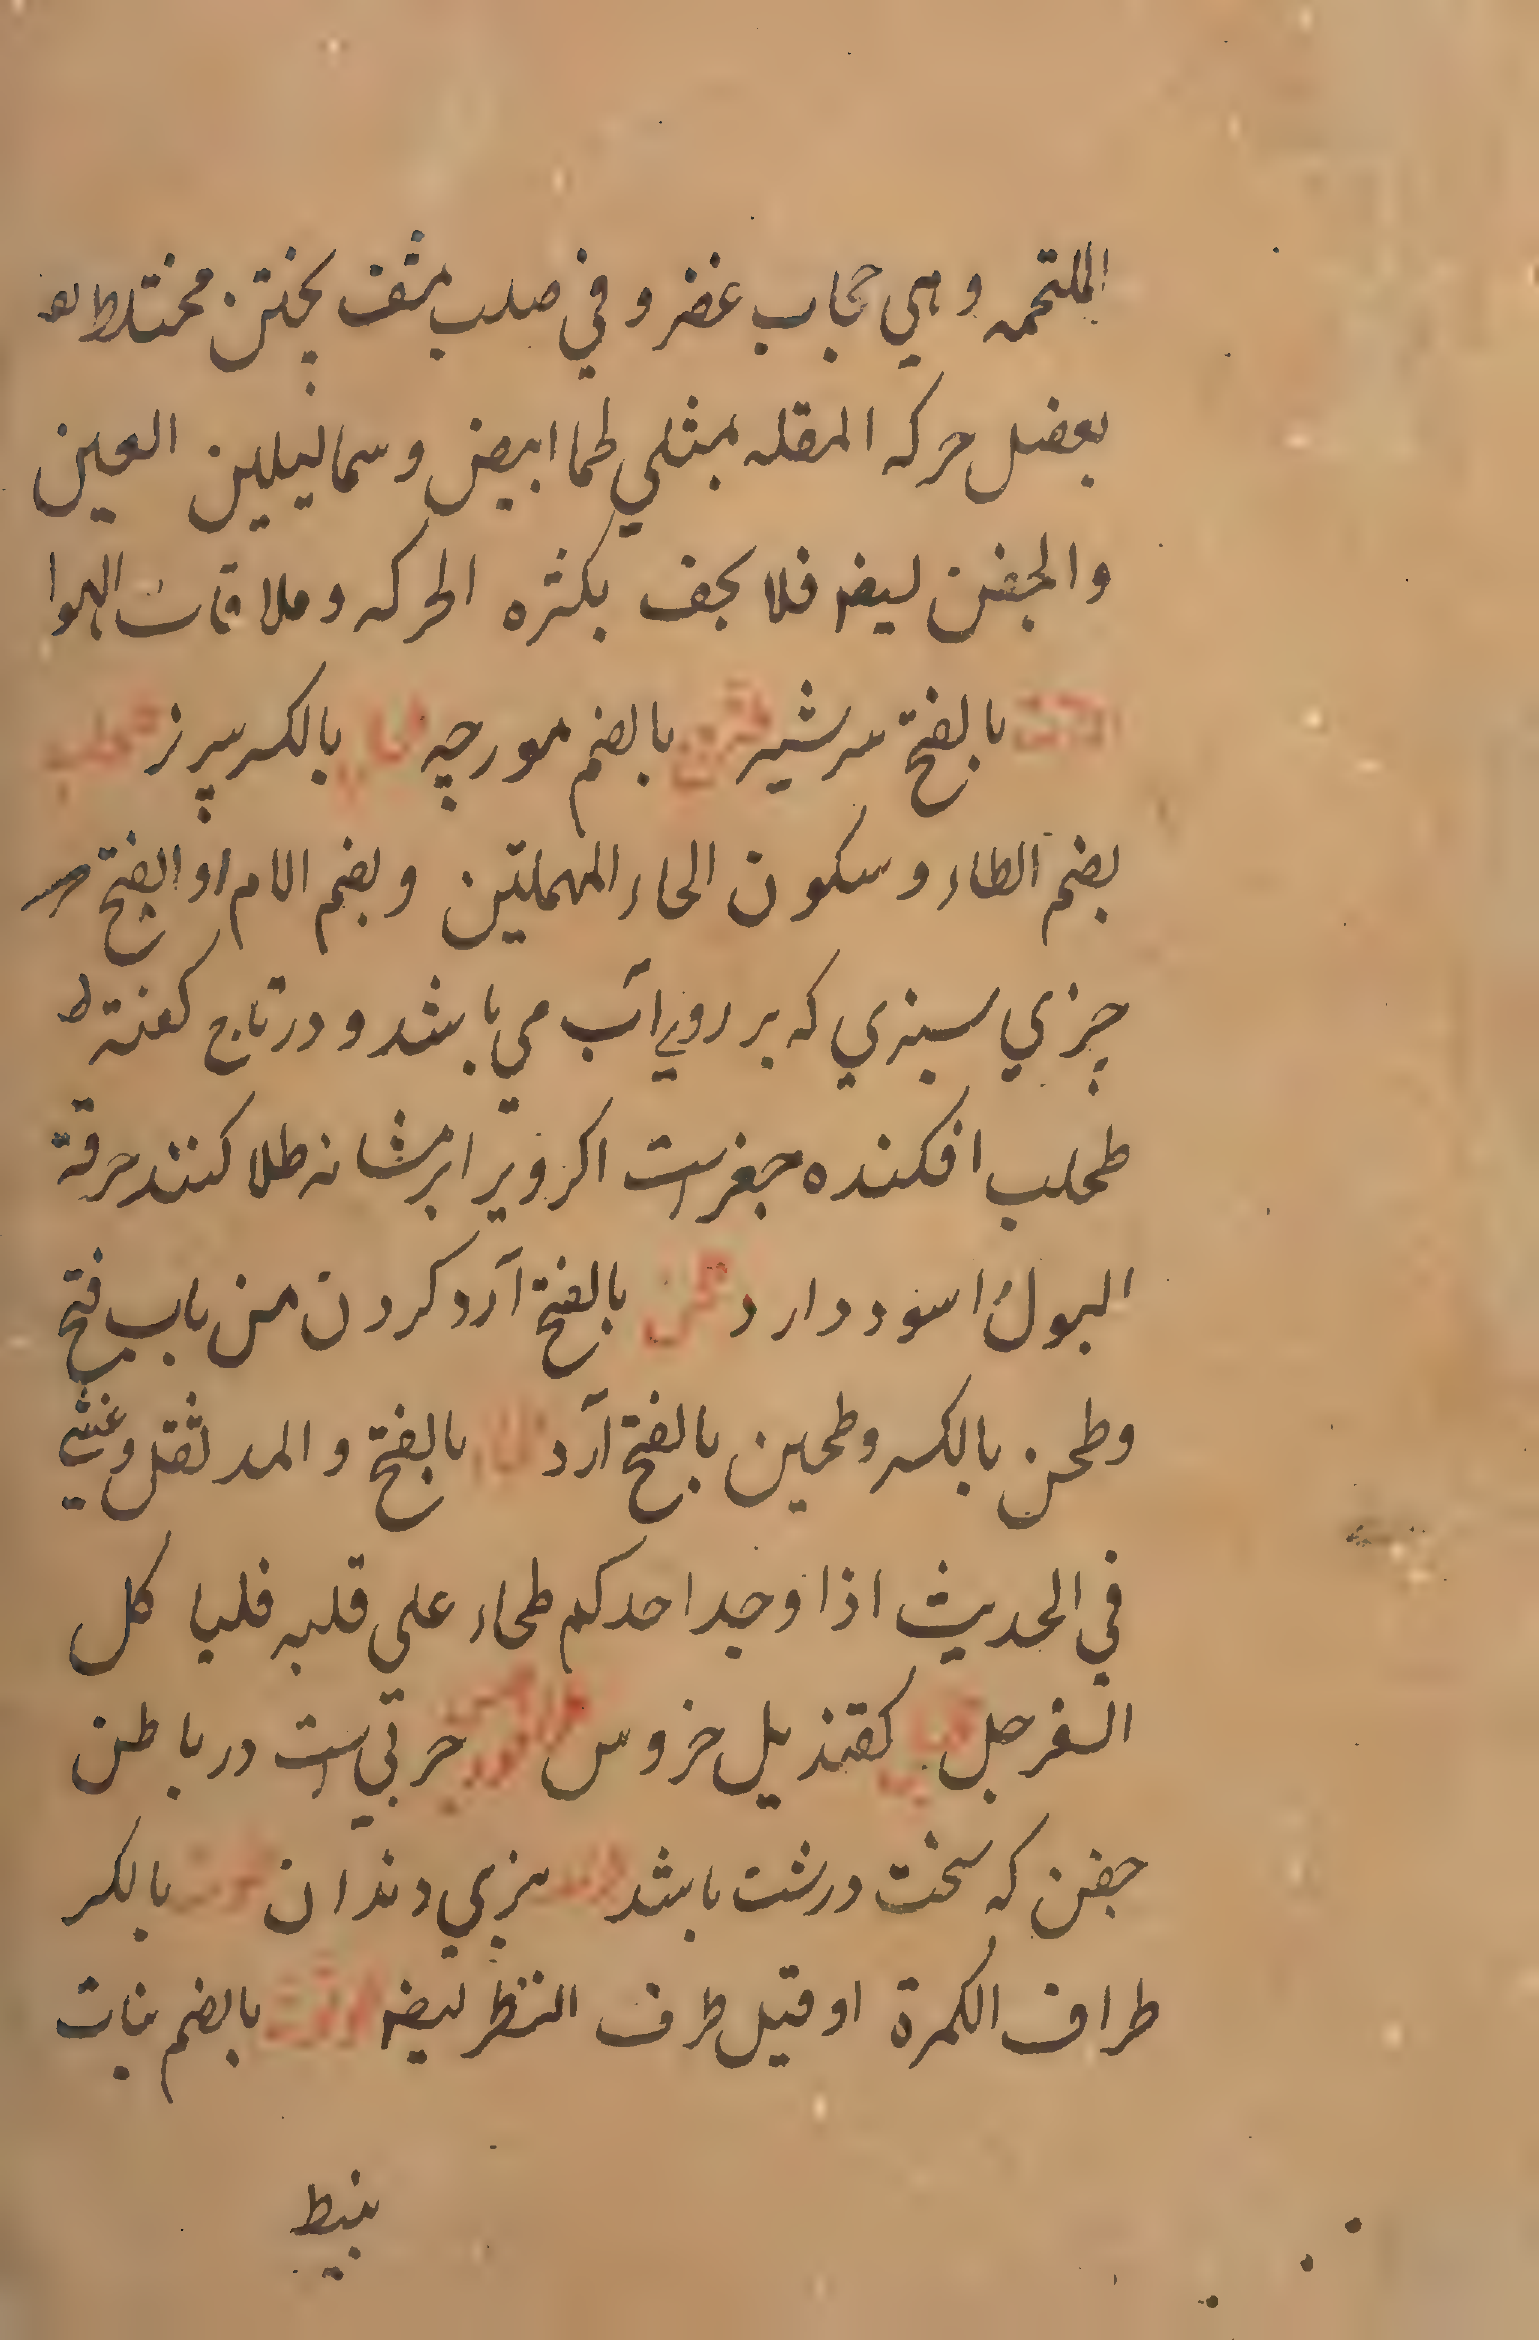 الملتحمه وهي حجاب غضروفي صلب مثف يختن مختلط بعـ
بعضل حركه المقله مبثلي طما ابيض وسما ليلين العين
والجفن ليضه فلا يجف بكثره الحركه وملاقات الهوا
بالفتح سرشير بالضم مورچه بالكسر سپرز طحلب
بضم الطاء وسكون الحاء المهملتين وبضم الام او الفتح
چزي سبزي كه بر روي آب مي باشد و در تاج كفته ط
طحلب افكنده جغرست اكر ويرا بر مثانه طلا كنند حرقة
البول اسود دارد طحن بالفتح آرد كردن من باب فتح
وطحن بالكسر وطحين بالفتح آرد بالفتح والمد ثقل وغشي
في الحديث اذا وجد احدكم طحاء علي قلبه فليا كل
السفرجل كقنديل خروس حربي است در باطن
جفن كه سخت درشت باشد سبزي دندان بالكسر
طراف الكمرة او قيل طرف النظر ليضه بالضم نبات
ينبط